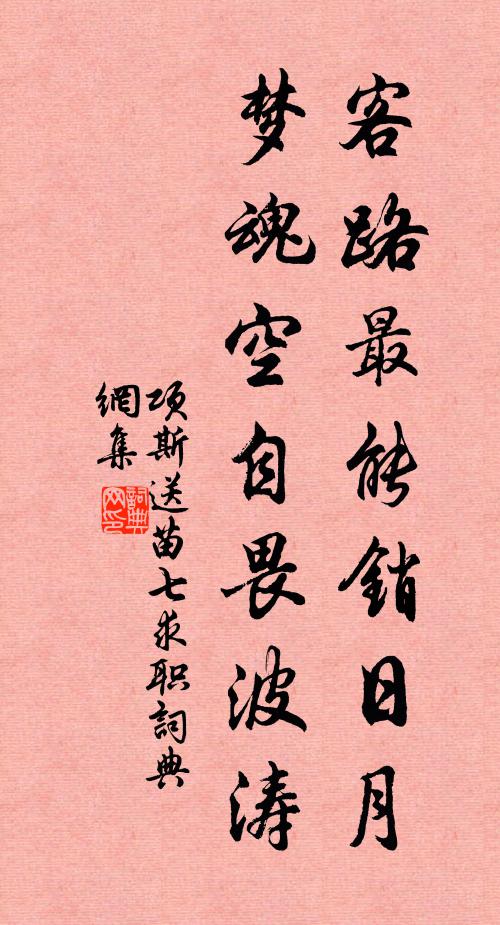 客路最能銷日月
梦魂空自畏波涛
项斯送苗七求职詞典
網集
詞典
网印